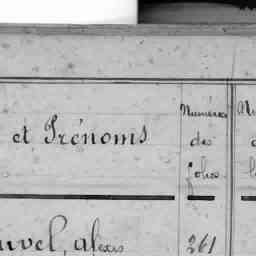 et Prénoms
Numéros
des
folios
uvel, alexis
261